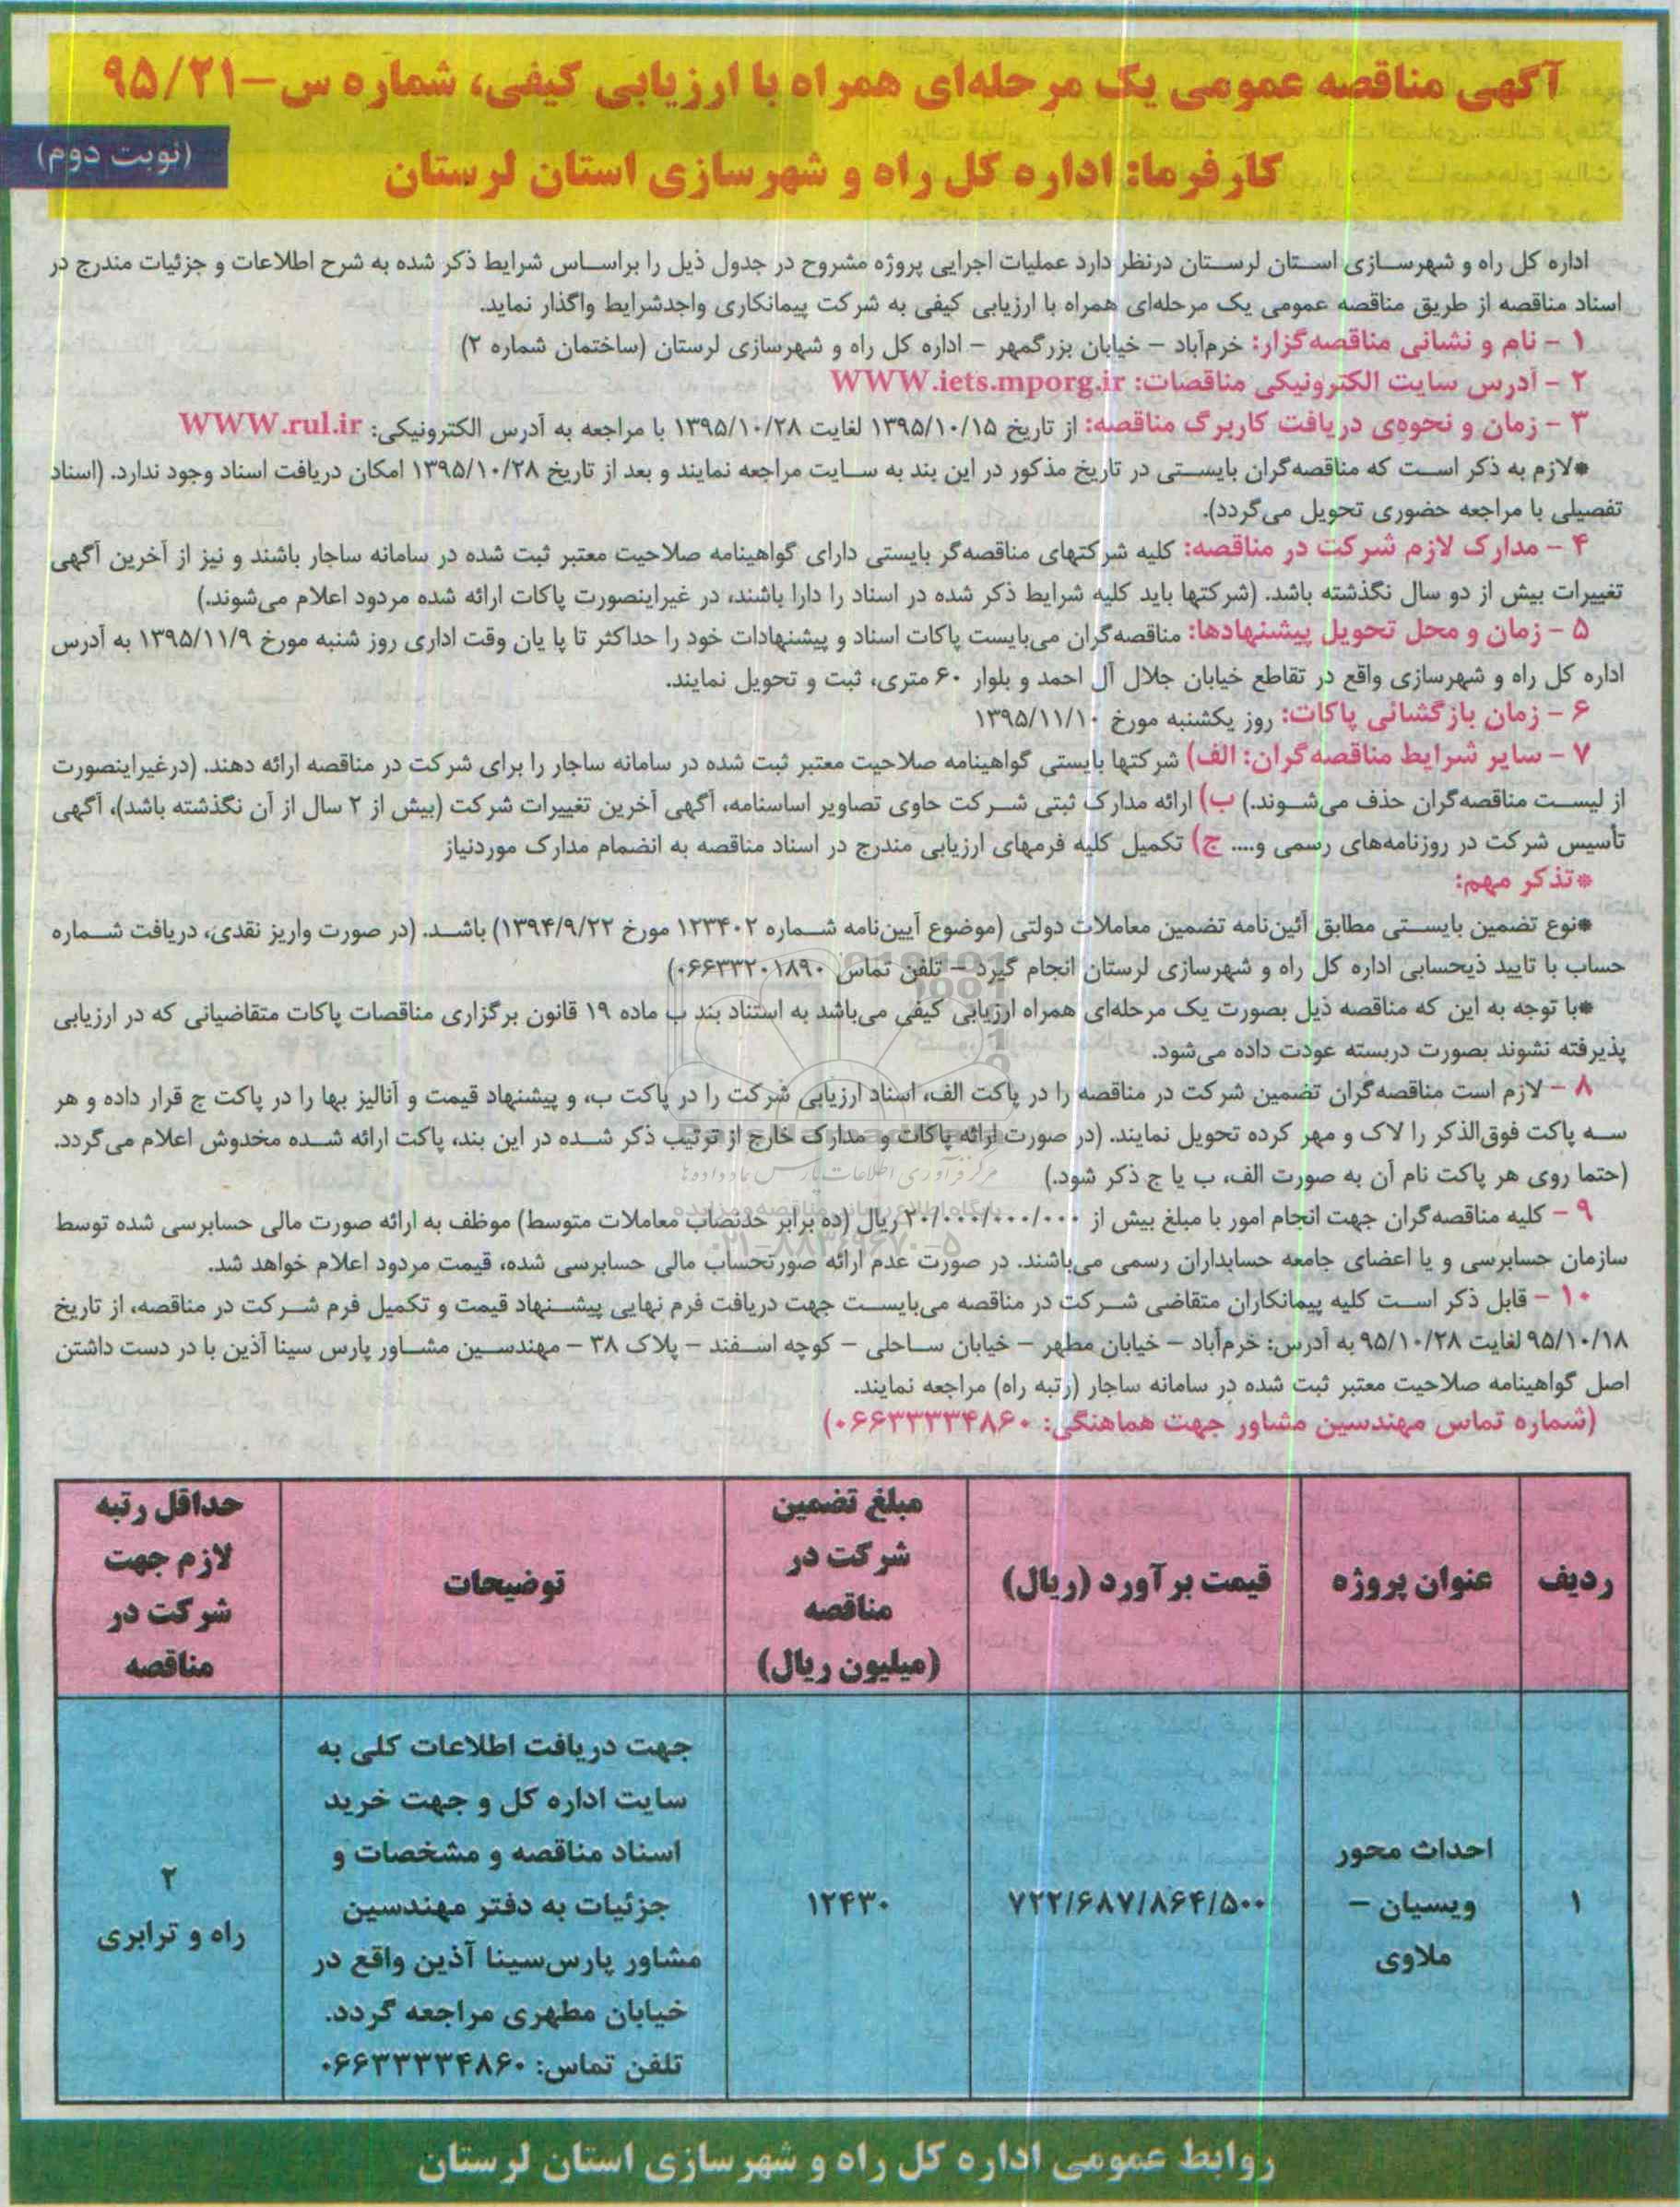 آگهی مناقصه عمومی یک مرحله‌ای همراه با ارزیابی کیفی، شماره س-۹۵/۲۱
(نوبت دوم)
کارفرما: اداره کل راه و شهرسازی استان لرستان
اداره کل راه و شهرسازی استان لرستان درنظر دارد عملیات اجرایی پروژه مشروح در جدول ذیل را براساس شرایط ذکر شده به شرح اطلاعات و جزئیات مندرج در
اسناد مناقصه از طریق مناقصه عمومی یک مرحله‌ای همراه با ارزیابی کیفی به شرکت پیمانکاری واجدشرایط واگذار نماید.
۱ - نام و نشانی مناقصه‌گزار: خرم‌آباد - خیابان بزرگمهر - اداره کل راه و شهرسازی لرستان (ساختمان شماره ۲)
۲ - آدرس سایت الکترونیکی مناقصات: WWW.iets.mporg.ir
۳ - زمان و نحوه‌ی دریافت کاربرگ مناقصه: از تاریخ ۱۳۹۵/۱۰/۱۵ لغایت ۱۳۹۵/۱۰/۲۸ با مراجعه به آدرس الکترونیکی: WWW.rul.ir
*لازم به ذکر است که مناقصه‌گران بایستی در تاریخ مذکور در این بند به سایت مراجعه نمایند و بعد از تاریخ ۱۳۹۵/۱۰/۲۸ امکان دریافت اسناد وجود ندارد. (اسناد
تفصیلی با مراجعه حضوری تحویل می‌گردد).
۴ - مدارک لازم شرکت در مناقصه: کلیه شرکتهای مناقصه‌گر بایستی دارای گواهینامه صلاحیت معتبر ثبت شده در سامانه ساجار باشند و نیز از آخرین آگهی
تغییرات بیش از دو سال نگذشته باشد. (شرکتها باید کلیه شرایط ذکر شده در اسناد را دارا باشند، در غیراینصورت پاکات ارائه شده مردود اعلام می‌شوند.)
۵ - زمان و محل تحویل پیشنهادها: مناقصه‌گران می‌بایست پاکات اسناد و پیشنهادات خود را حداکثر تا پا یان وقت اداری روز شنبه مورخ ۱۳۹۵/۱۱/۹ به آدرس
اداره کل راه و شهرسازی واقع در تقاطع خیابان جلال آل احمد و بلوار ۶۰ متری، ثبت و تحویل نمایند.
۶ - زمان بازگشائی پاکات: روز یکشنبه مورخ ۱۳۹۵/۱۱/۱۰
۷ - سایر شرایط مناقصه‌گران: الف) شرکتها بایستی گواهینامه صلاحیت معتبر ثبت شده در سامانه ساجار را برای شرکت در مناقصه ارائه دهند. (درغیراینصورت
از لیست مناقصه‌گران حذف می‌شوند.) ب) ارائه مدارک ثبتی شرکت حاوی تصاویر اساسنامه، آگهی آخرین تغییرات شرکت (بیش از ۲ سال از آن نگذشته باشد)، آگهی
تأسیس شرکت در روزنامه‌های رسمی و.... ج) تکمیل کلیه فرمهای ارزیابی مندرج در اسناد مناقصه به انضمام مدارک موردنیاز
*تذکر مهم:
*نوع تضمین بایستی مطابق آئین‌نامه تضمین معاملات دولتی (موضوع آیین‌نامه شماره ۱۲۳۴۰۲ مورخ ۱۳۹۴/۹/۲۲) باشد. (در صورت واریز نقدی، دریافت شماره
حساب با تایید ذیحسابی اداره کل راه و شهرسازی لرستان انجام گیرد - تلفن تماس ۰۶۶۳۳۲۰۱۸۹۰)
*با توجه به این که مناقصه ذیل بصورت یک مرحله‌ای همراه ارزیابی کیفی می‌باشد به استناد بند ب ماده ۱۹ قانون برگزاری مناقصات پاکات متقاضیانی که در ارزیابی
پذیرفته نشوند بصورت دربسته عودت داده می‌شود.
۸ - لازم است مناقصه‌گران تضمین شرکت در مناقصه را در پاکت الف، اسناد ارزیابی شرکت را در پاکت ب، و پیشنهاد قیمت و آنالیز بها را در پاکت ج قرار داده و هر
سه پاکت فوق‌الذکر را لاک و مهر کرده تحویل نمایند. (در صورت ارائه پاکات و مدارک خارج از ترتیب ذکر شده در این بند، پاکت ارائه شده مخدوش اعلام می‌گردد.
(حتما روی هر پاکت نام آن به صورت الف، ب یا ج ذکر شود.)
۹ - کلیه مناقصه‌گران جهت انجام امور با مبلغ بیش از ۲۰/۰۰۰/۰۰۰/۰۰۰ ریال (ده برابر حدنصاب معاملات متوسط) موظف به ارائه صورت مالی حسابرسی شده توسط
سازمان حسابرسی و یا اعضای جامعه حسابداران رسمی می‌باشند. در صورت عدم ارائه صورتحساب مالی حسابرسی شده، قیمت مردود اعلام خواهد شد.
۱۰ - قابل ذکر است کلیه پیمانکاران متقاضی شرکت در مناقصه می‌بایست جهت دریافت فرم نهایی پیشنهاد قیمت و تکمیل فرم شرکت در مناقصه، از تاریخ
۹۵/۱۰/۱۸ لغایت ۹۵/۱۰/۲۸ به آدرس: خرم‌آباد - خیابان مطهر - خیابان ساحلی - کوچه اسفند - پلاک ۳۸ - مهندسین مشاور پارس سینا آذین با در دست داشتن
اصل گواهینامه صلاحیت معتبر ثبت شده در سامانه ساجار (رتبه راه) مراجعه نمایند.
(شماره تماس مهندسین مشاور جهت هماهنگی: ۰۶۶۳۳۳۳۴۸۶۰)
ردیف
عنوان پروژه
قیمت برآورد (ریال)
مبلغ تضمین
شرکت در
مناقصه
(میلیون ریال)
توضیحات
حداقل رتبه
لازم جهت
شرکت در
مناقصه
۱
احداث محور
ویسیان -
ملاوی
۷۲۲/۶۸۷/۸۶۴/۵۰۰
۱۲۴۳۰
جهت دریافت اطلاعات کلی به
سایت اداره کل و جهت خرید
اسناد مناقصه و مشخصات و
جزئیات به دفتر مهندسین
مشاور پارس‌سینا آذین واقع در
خیابان مطهری مراجعه گردد.
تلفن تماس: ۰۶۶۳۳۳۳۴۸۶۰
۲
راه و ترابری
روابط عمومی اداره کل راه و شهرسازی استان لرستان